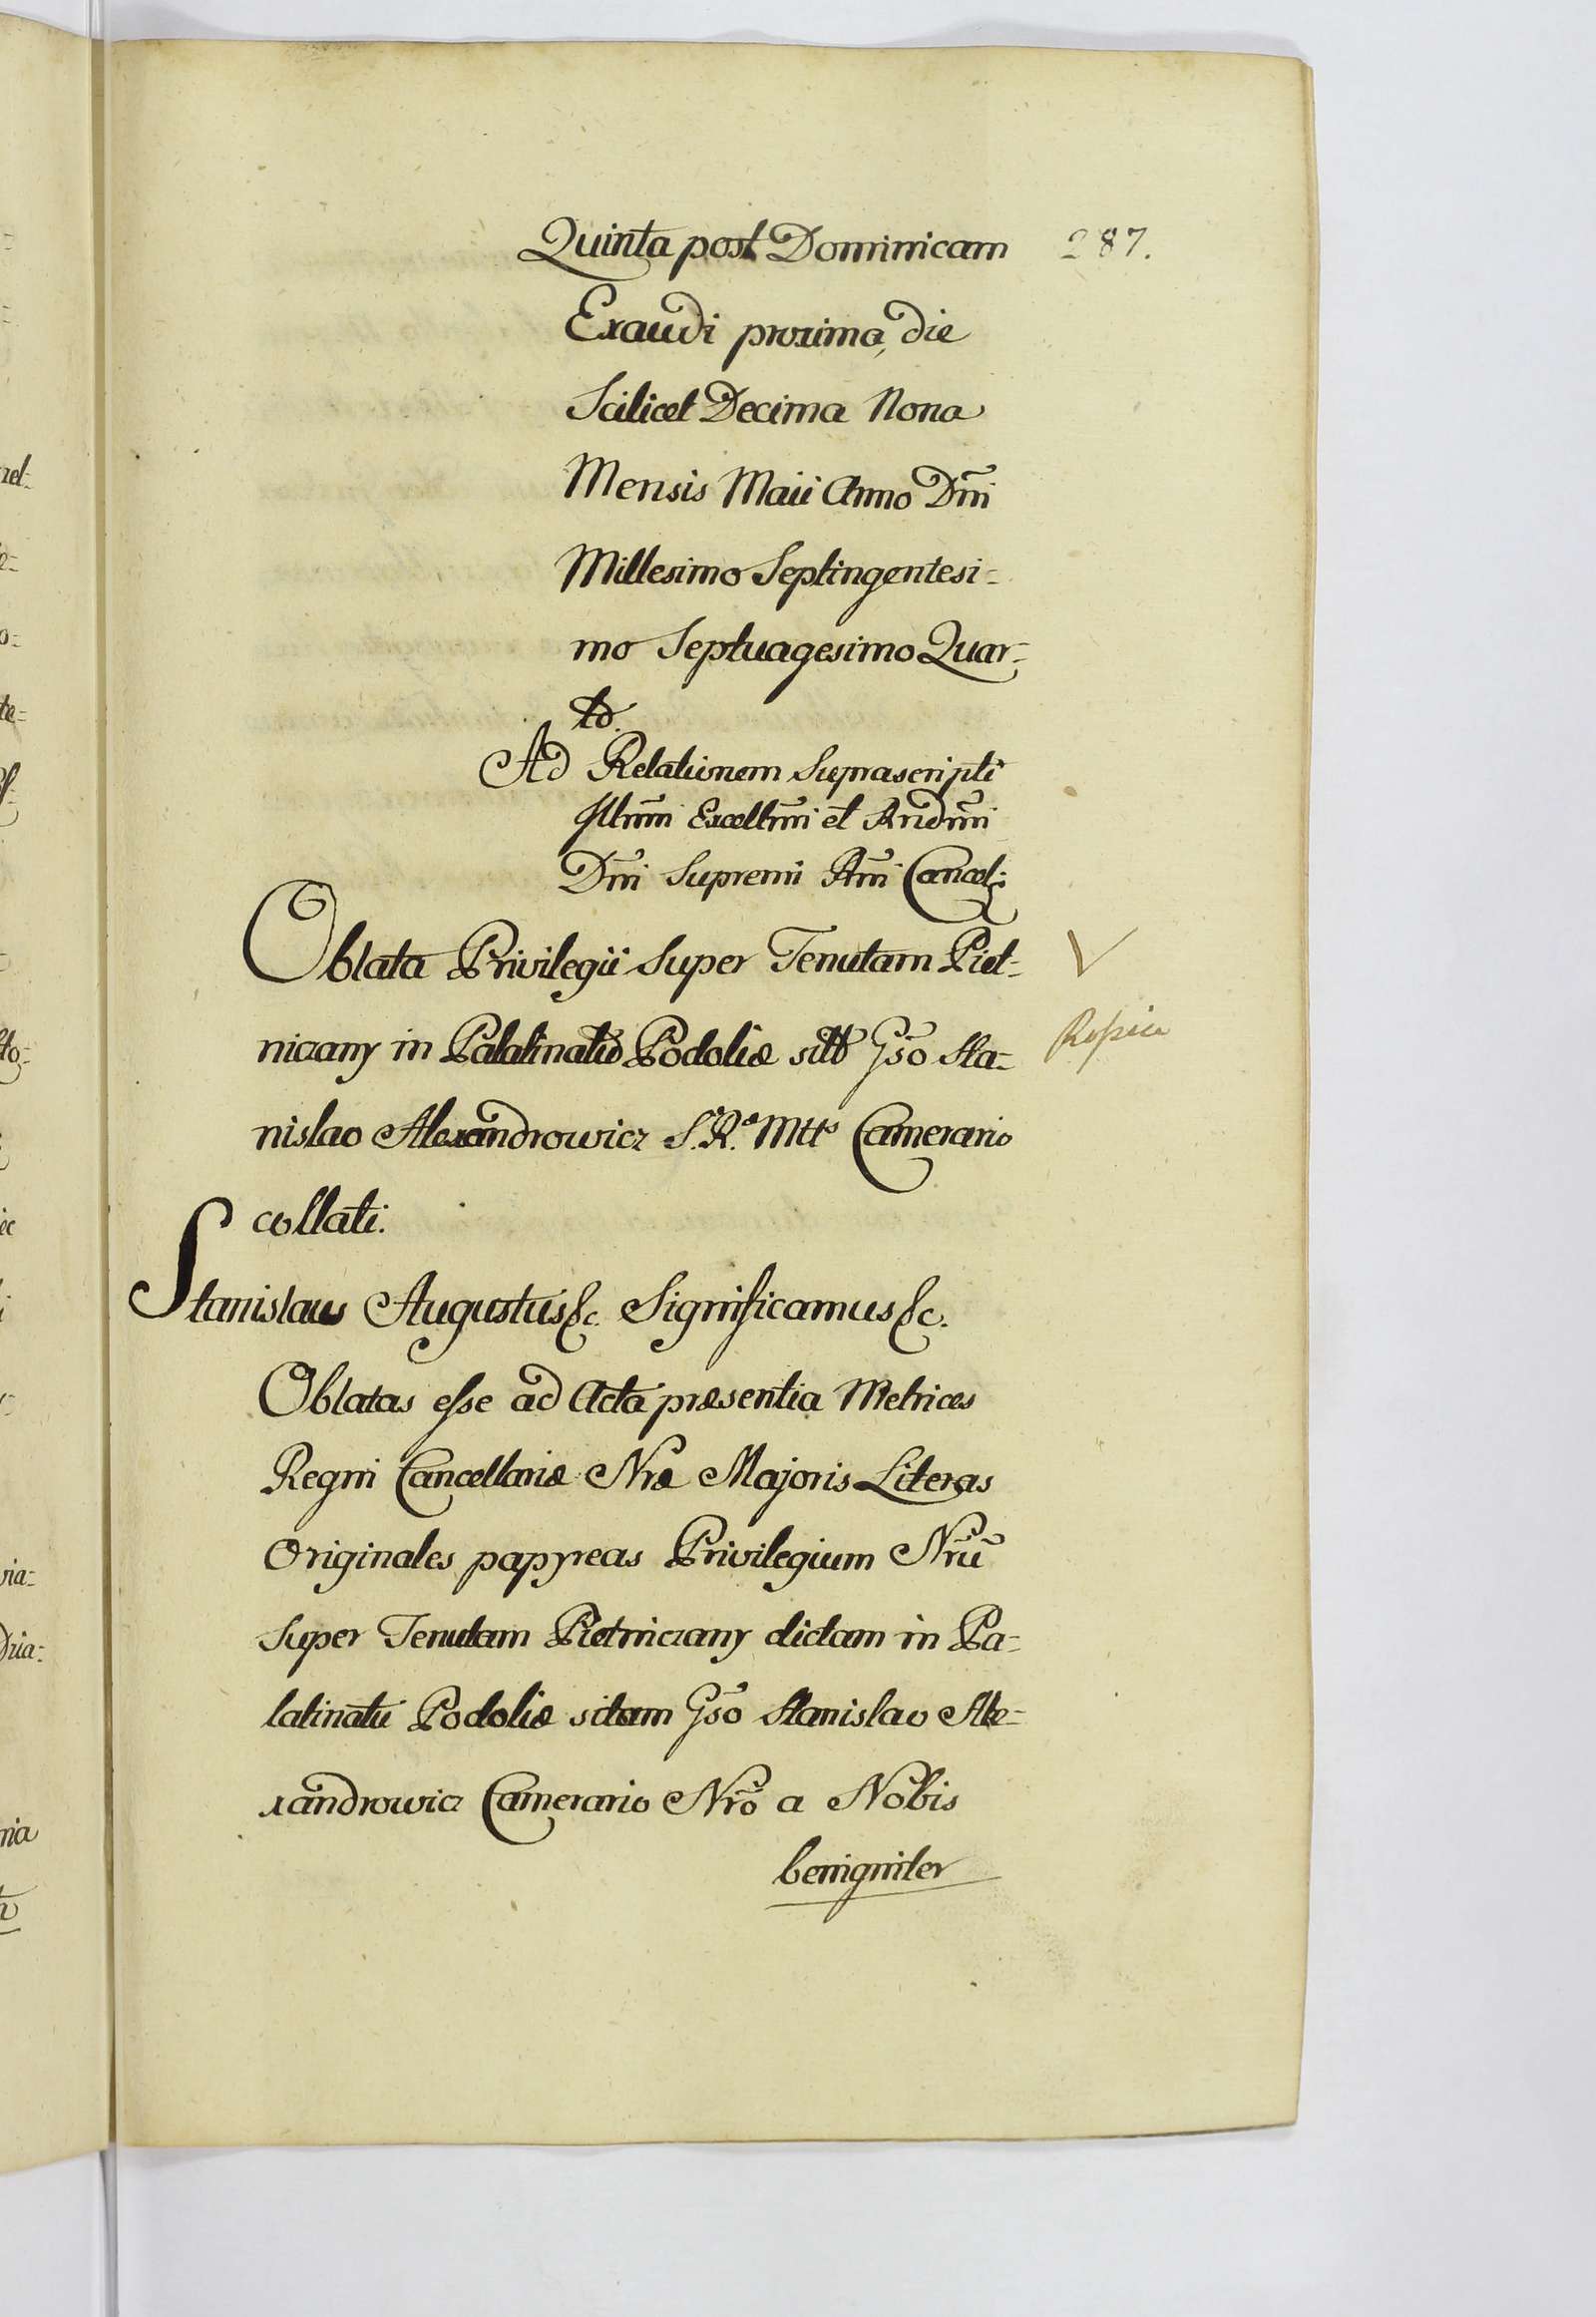 Quinta post Dominicam 287.
Exaudi proxima, die
Scilicet Decima Nona
Mensis Maii Anno Dni
Millesimo Septingentesi=
mo Septuagesimo Quar=
to.
Ad Relationem Suprascripti
Illmi Excellmi et Rndmi
Dni Supremi Rni Cancel:
Oblata Privilegii super Tenutam Piet=
niczany in Palatinatu Podoliæ sitt Gso Sta=
nislao Alexandrowicz S. R. Mtts Camerario
collati.
Stanislaus Augustus &c. Significamus &c.
Oblatas esse ad Acta præsentia Metrices
Regni Cancellariæ Nræ Majoris Literas
Originales papyreas Privilegium Nrũ
super Tenutam Pietniczany dictam in Pa=
latinatu Podoliæ sitam Gso Stanislao Ale=
xandrowicz Camerario Nro a Nobis
benigniter